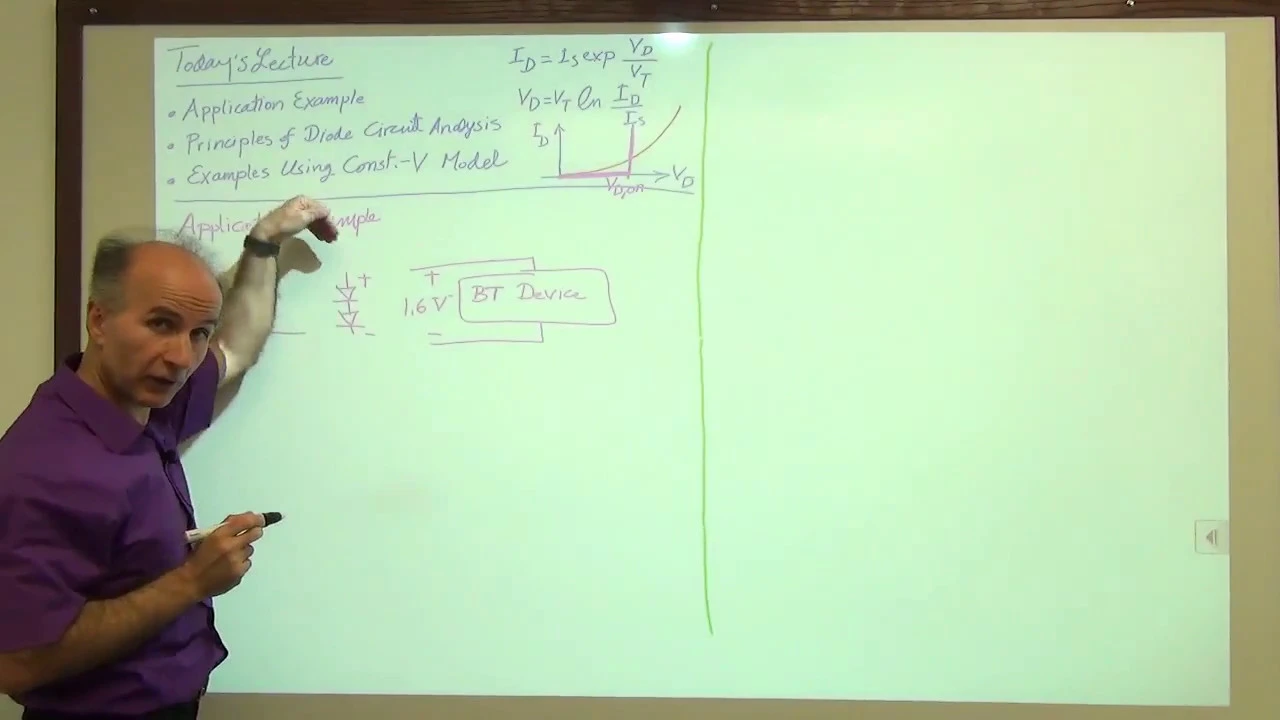 Today's Lecture
• Application Example
• Principles of Diode Circuit Analysis
• Examples Using Const.-V Model
I_D = I_S exp V_D / V_T
V_D = V_T ln I_D / I_S
I_D
V_D
V_D,on
+
+
1.6 V
BT Device
-
-